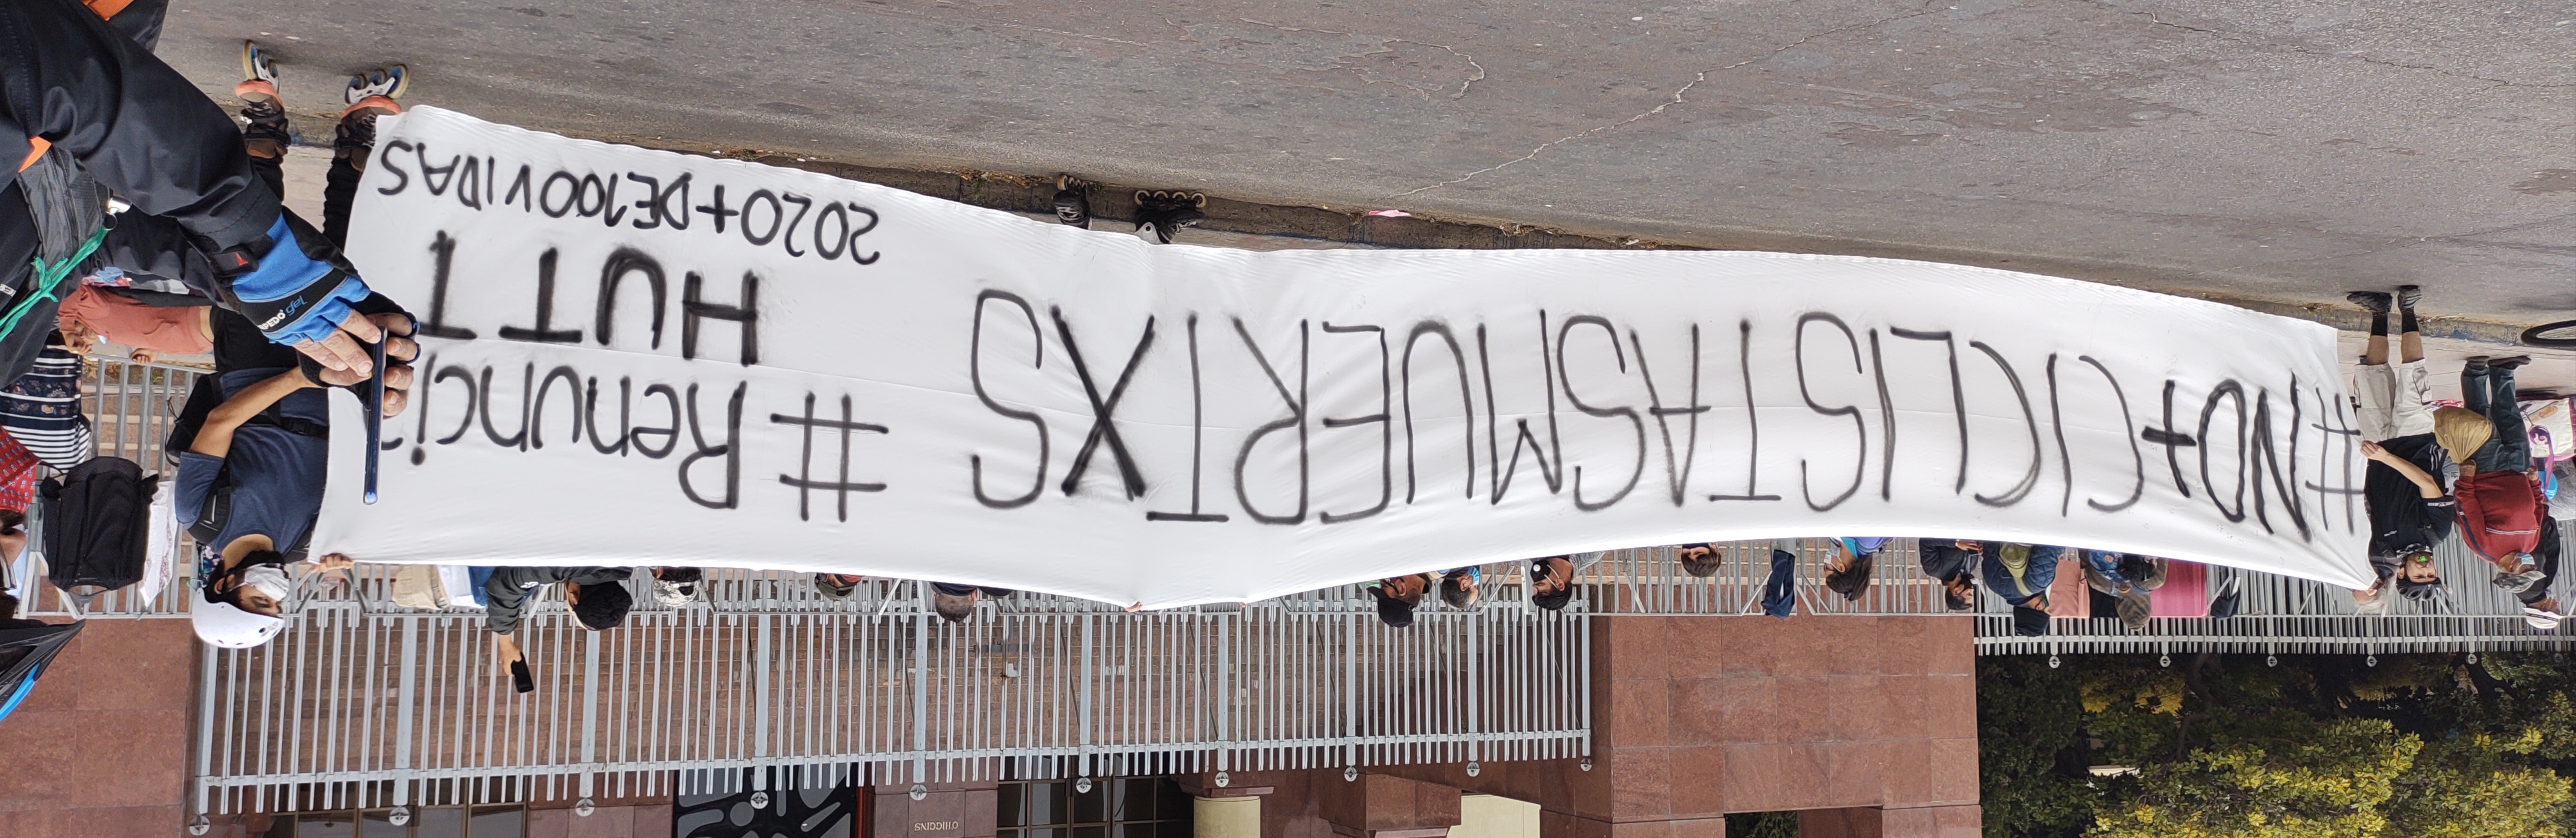 O'HIGGINS
#NO+CICLISTASMUERTXS
#Renuncia
HUTT
2020+DE100VIDAS
gel